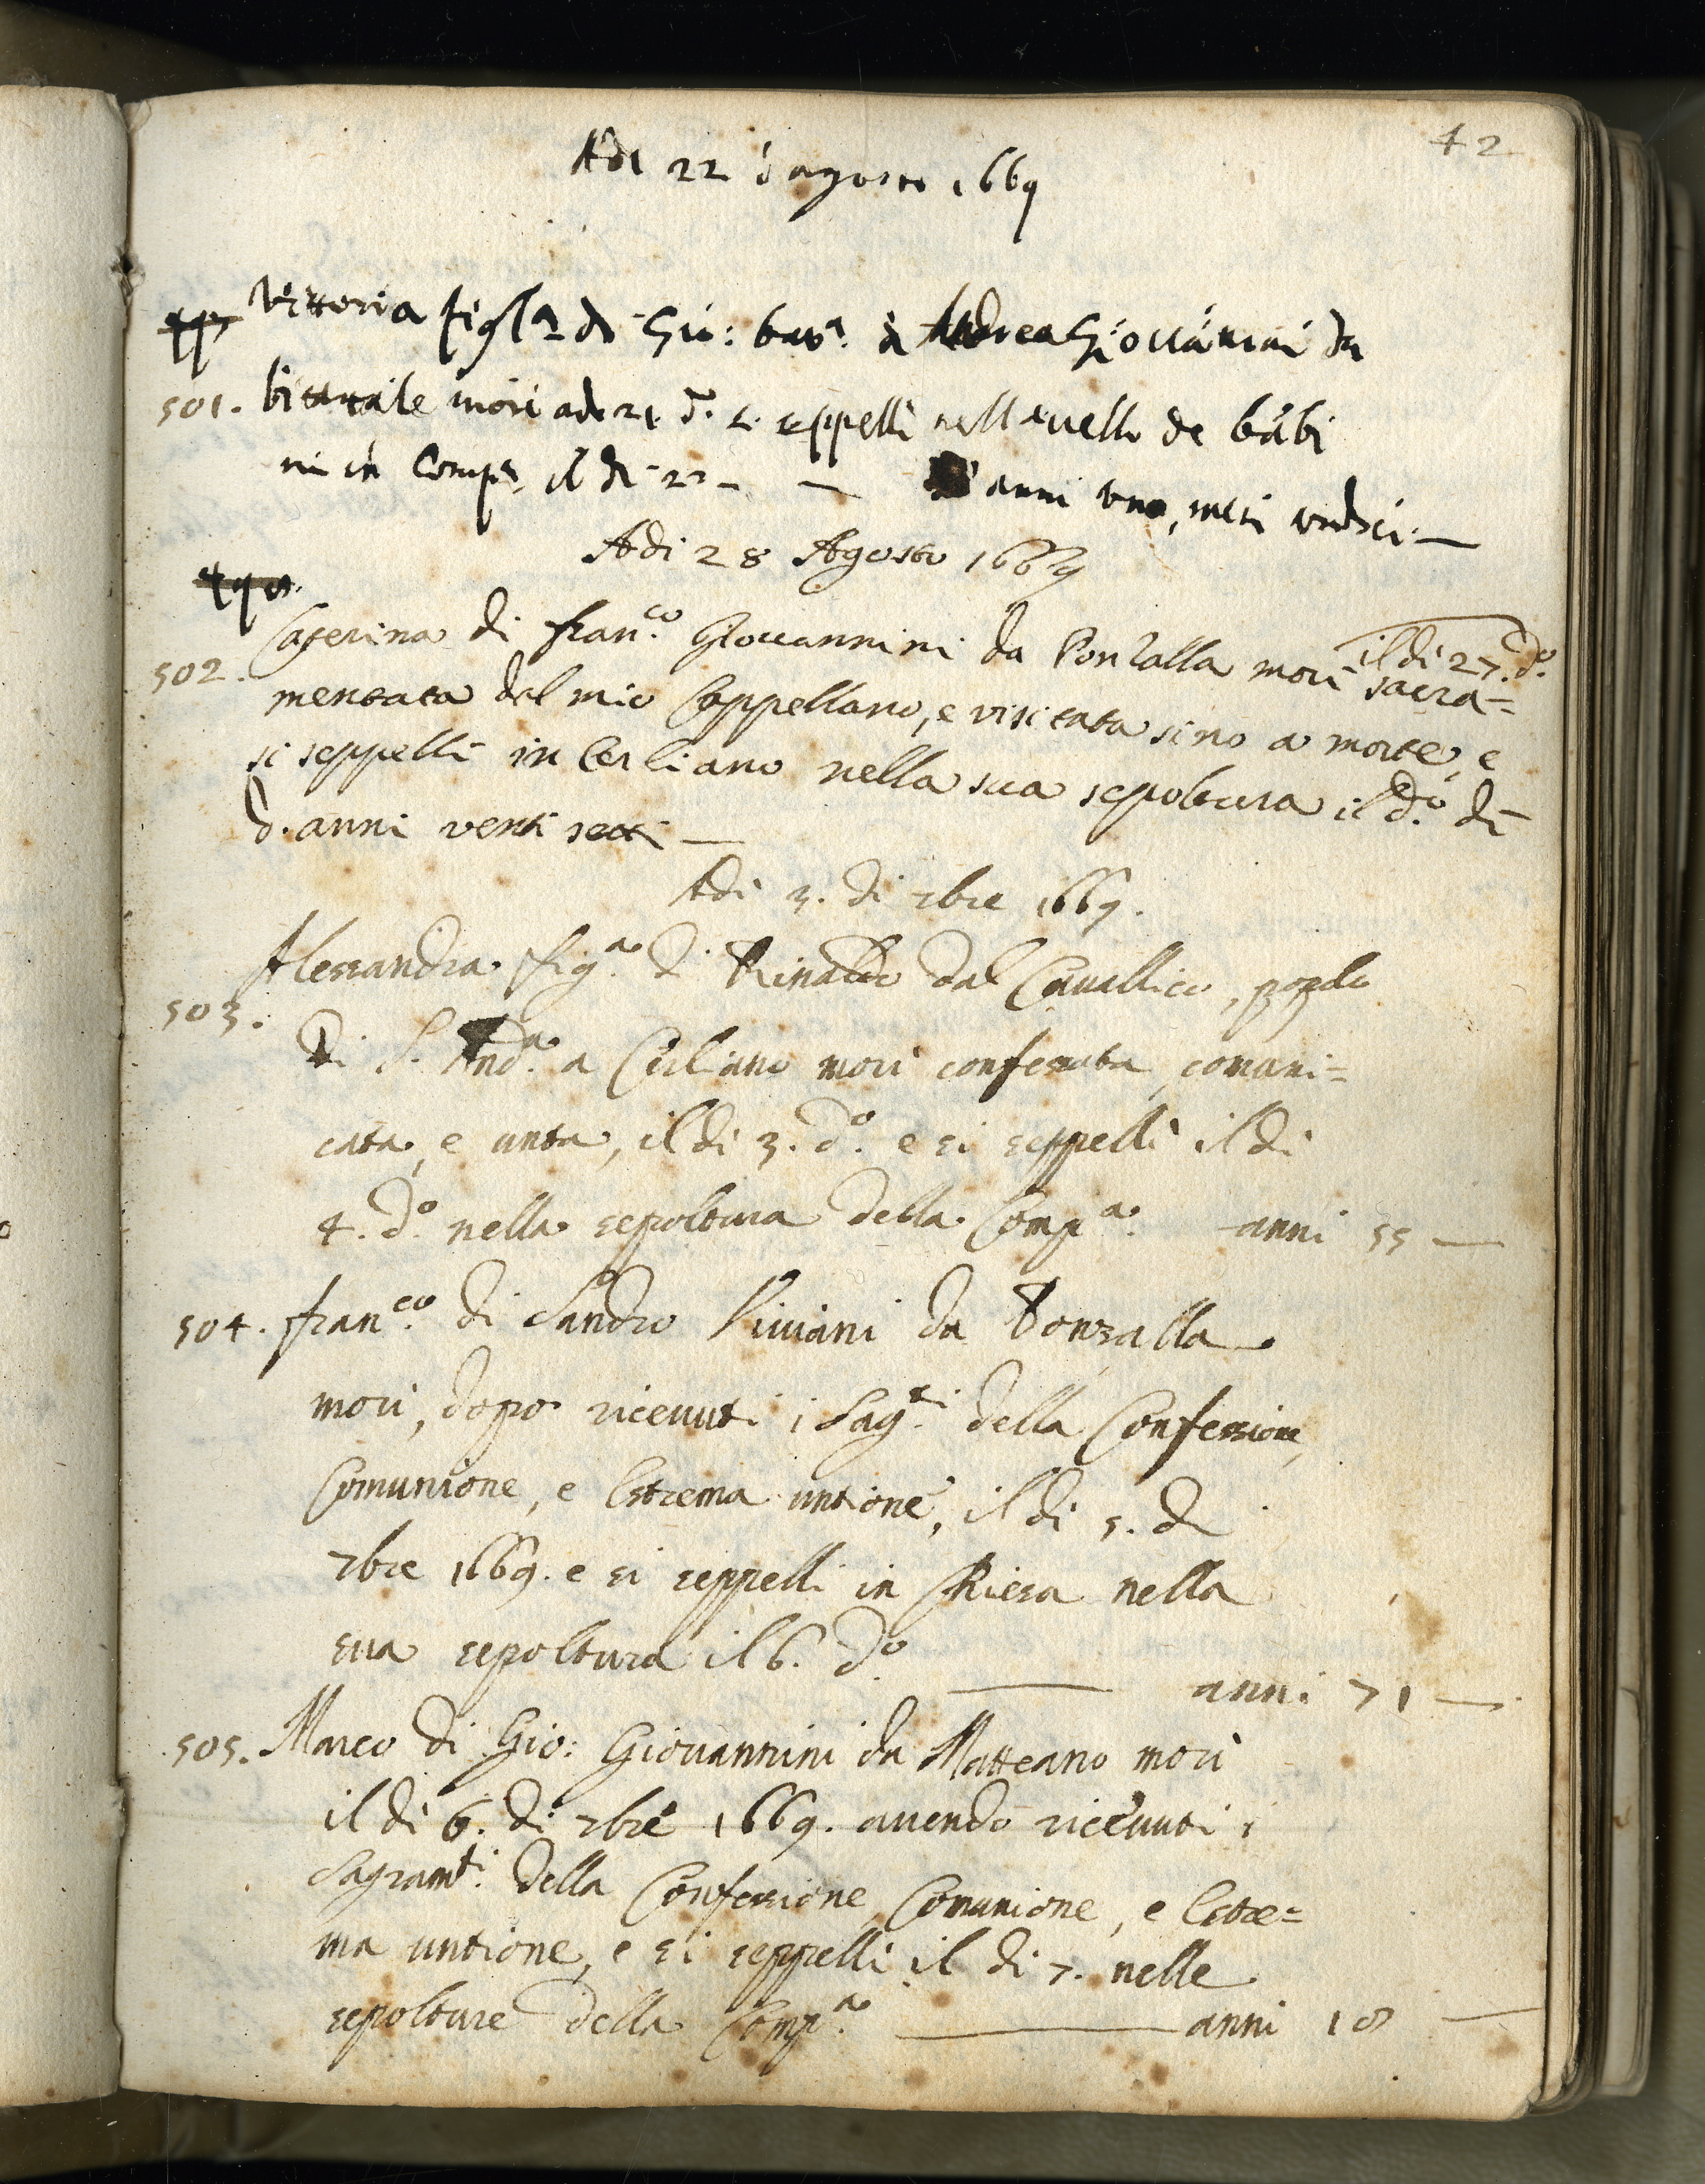 42
Adi 22 d agosto 1669
Vittoria figla di Gio: bata. di Andrea Giovannini da
501. morì adi 21 do. e seppellì nell avello de bābi
ni in Compa. il di 22 — — d'anni uno, mesi undici. —
Adi 28 Agosto 1669
Caterina di Franco. Giovannini da Ponzalla morì il di 27. do. sacra=
502. mentata dal mio Cappellano, e visitata sino a morte, e
si seppellì in Cerliano nella sua sepoltura il do. dì
d. anni venti setti —
Adi 3. di 7bre 1669.
Alessandra figa. di Rinaldo dal Cavallico, popolo
503.
di S. Anda. a Cerliano morì confessata, comuni=
cata, e unta, il di 3. do. e si seppellì il di
4. do. nella sepoltura della Compa. anni 55 —
504. Franco. di Sandro Viviani da Ponzalla
morì, dopo ricevuti i Sagti. della Confessione,
Comunione, e Estrema untione, il di 5. di
7bre 1669. e si seppellì in Riera nella
sua sepoltura il 6. do. — anni 71 —
505. Marco di Gio: Giovannini da Matteano morì
il di 6. di 7bre 1669. avendo ricevuti i
Sagramti. della Confessione, Comunione, e Estre=
ma untione, e si seppellì il di 7. nelle
sepolture della Compa. — anni 18 —